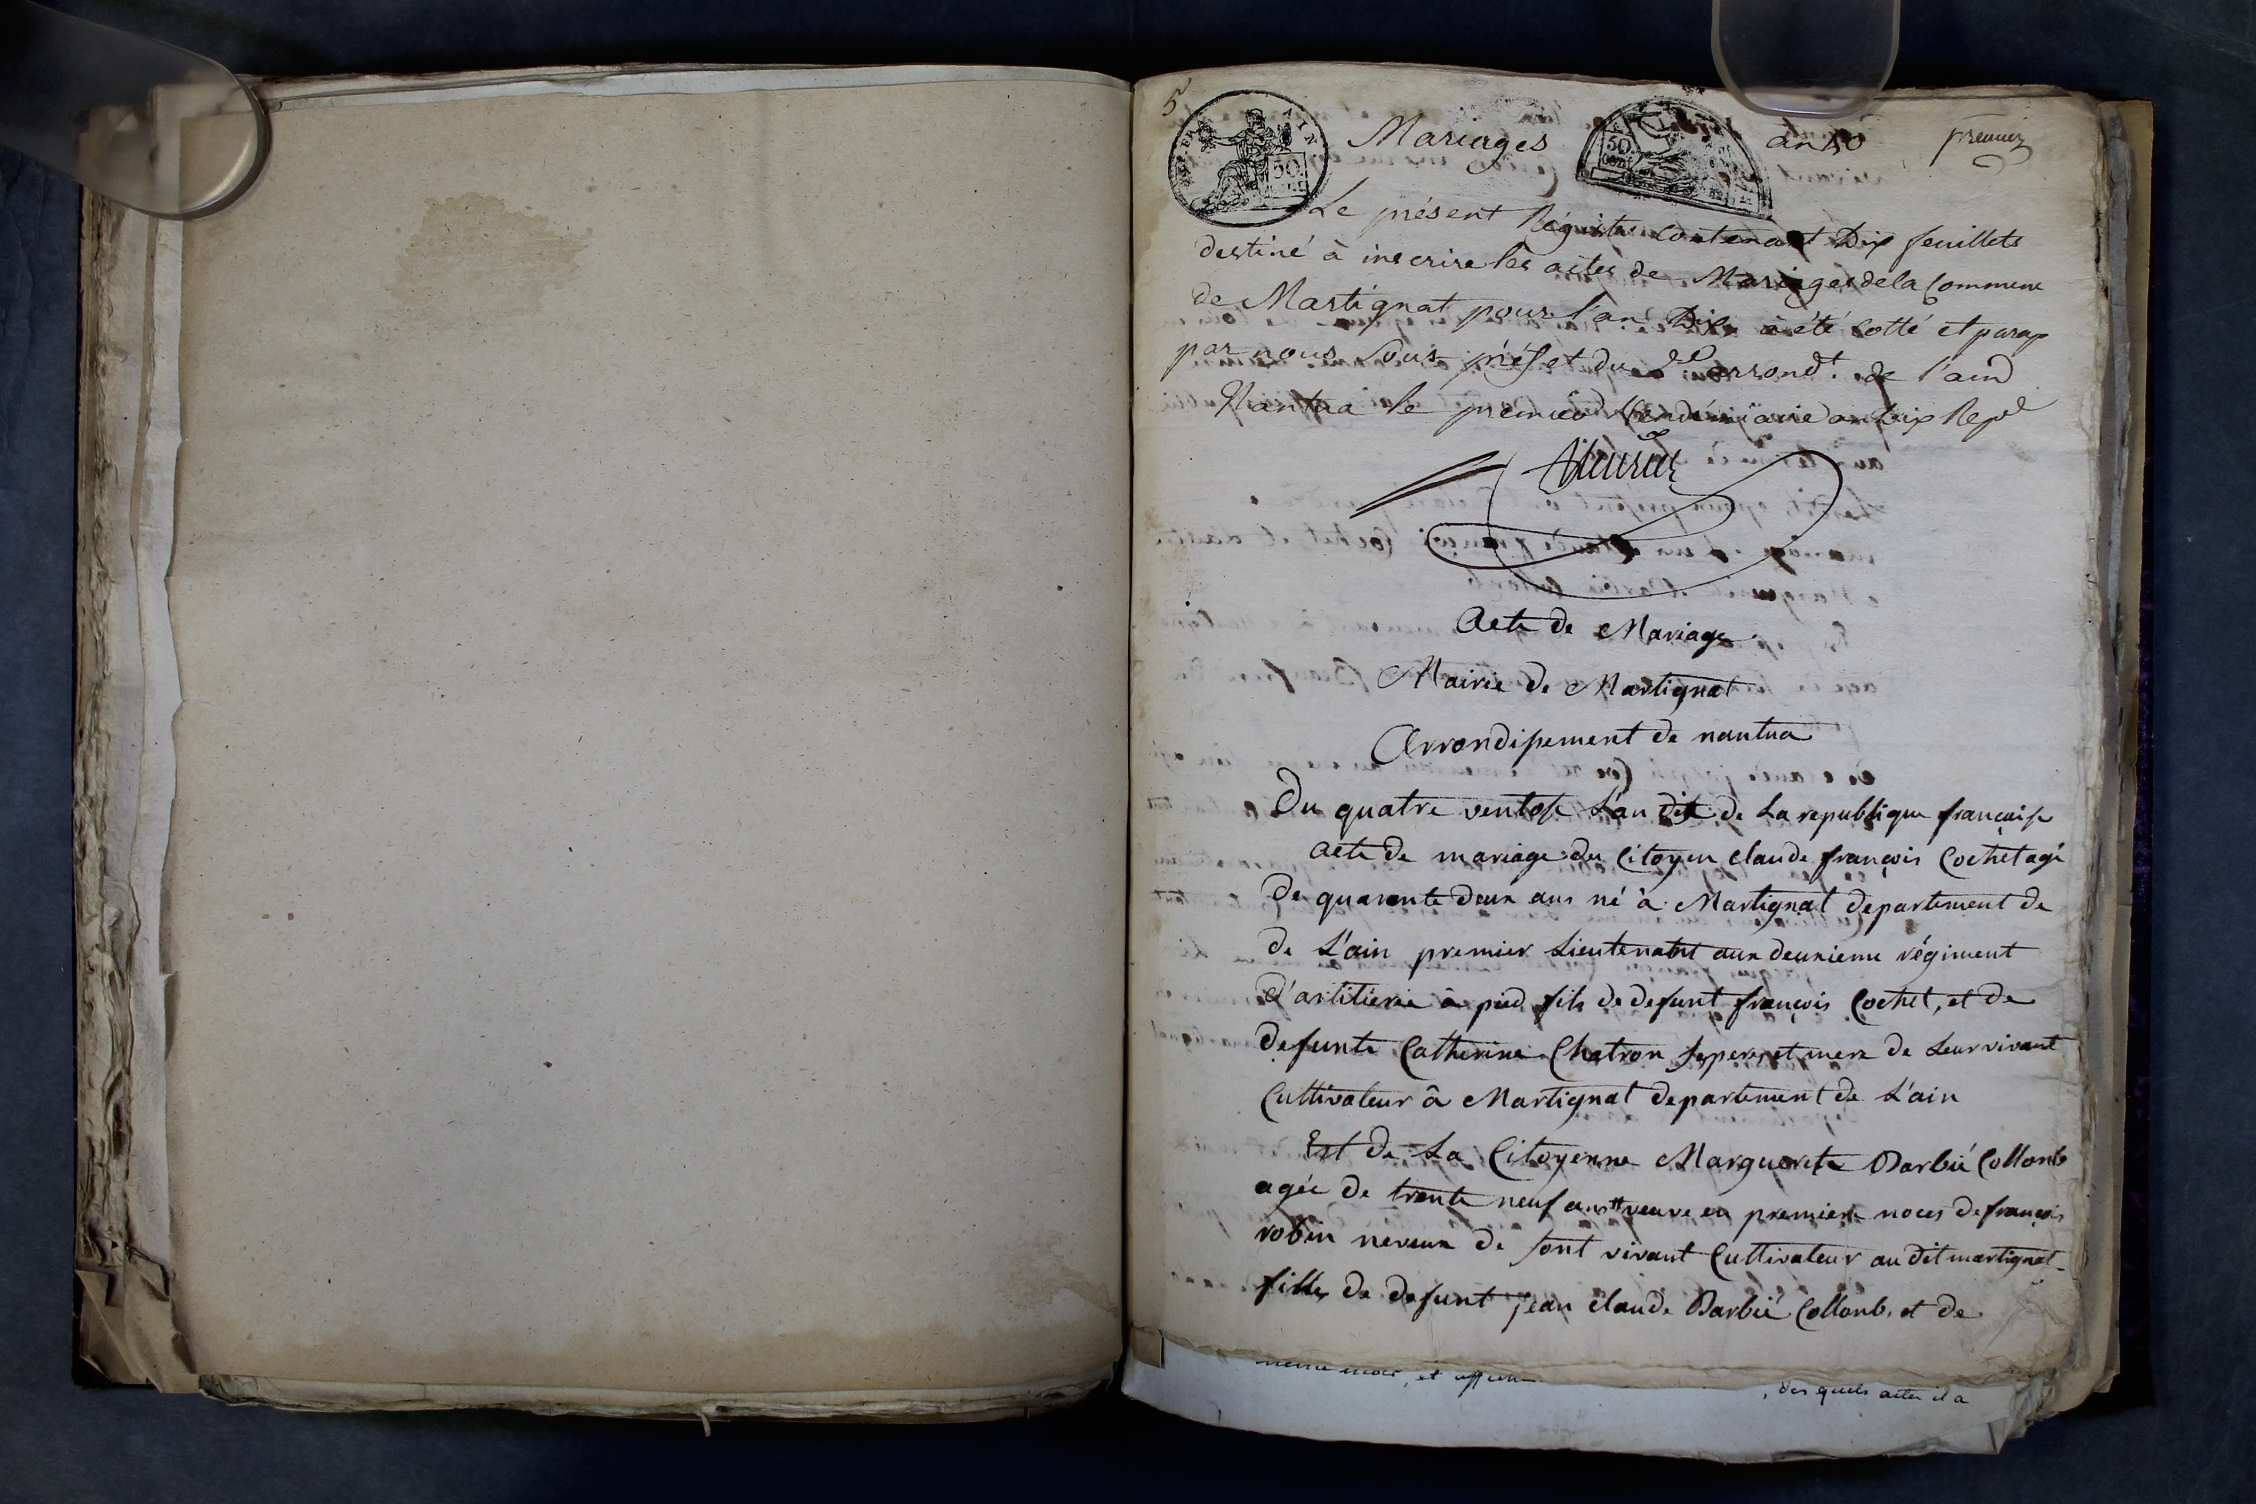 5
Mariages an 10 premier
50 50 cent
Le présent Régistre contenant Dix feuillets
destiné à inscrire les actes de Mariages de la Commune
de Martignat pour l'an Dix, a été cotté et parap
par nous Sous-préfet du 2e arrondt. de l'ain
Nantua le premier Vendémiaire an Dix Repe
Acte de Mariage
Mairie de Martignat
Arrondissement de nantua
Du quatre ventose L'an dix de La republique française
acte de mariage du Citoyen Claude françois Cochet agé
de quarante deux ans né à Martignat departement de
de L'ain premier Lieutenant aux deuxieme régiment
d'artilierie à pied fils de defunt françois Cochet, et de
defunte Catherine Chatron ses pere et mere de Leur vivant
Cultivateur â Martignat departement de L'ain
Est de La Citoyenne Marguerite Barbié Collomb
agée de trente neuf ans veuve en premiere noces de françois
robin neveux de sont vivant Cultivateur au dit martignat
fille de defunt jean claude Barbié Collomb, et de
des quels actes il a